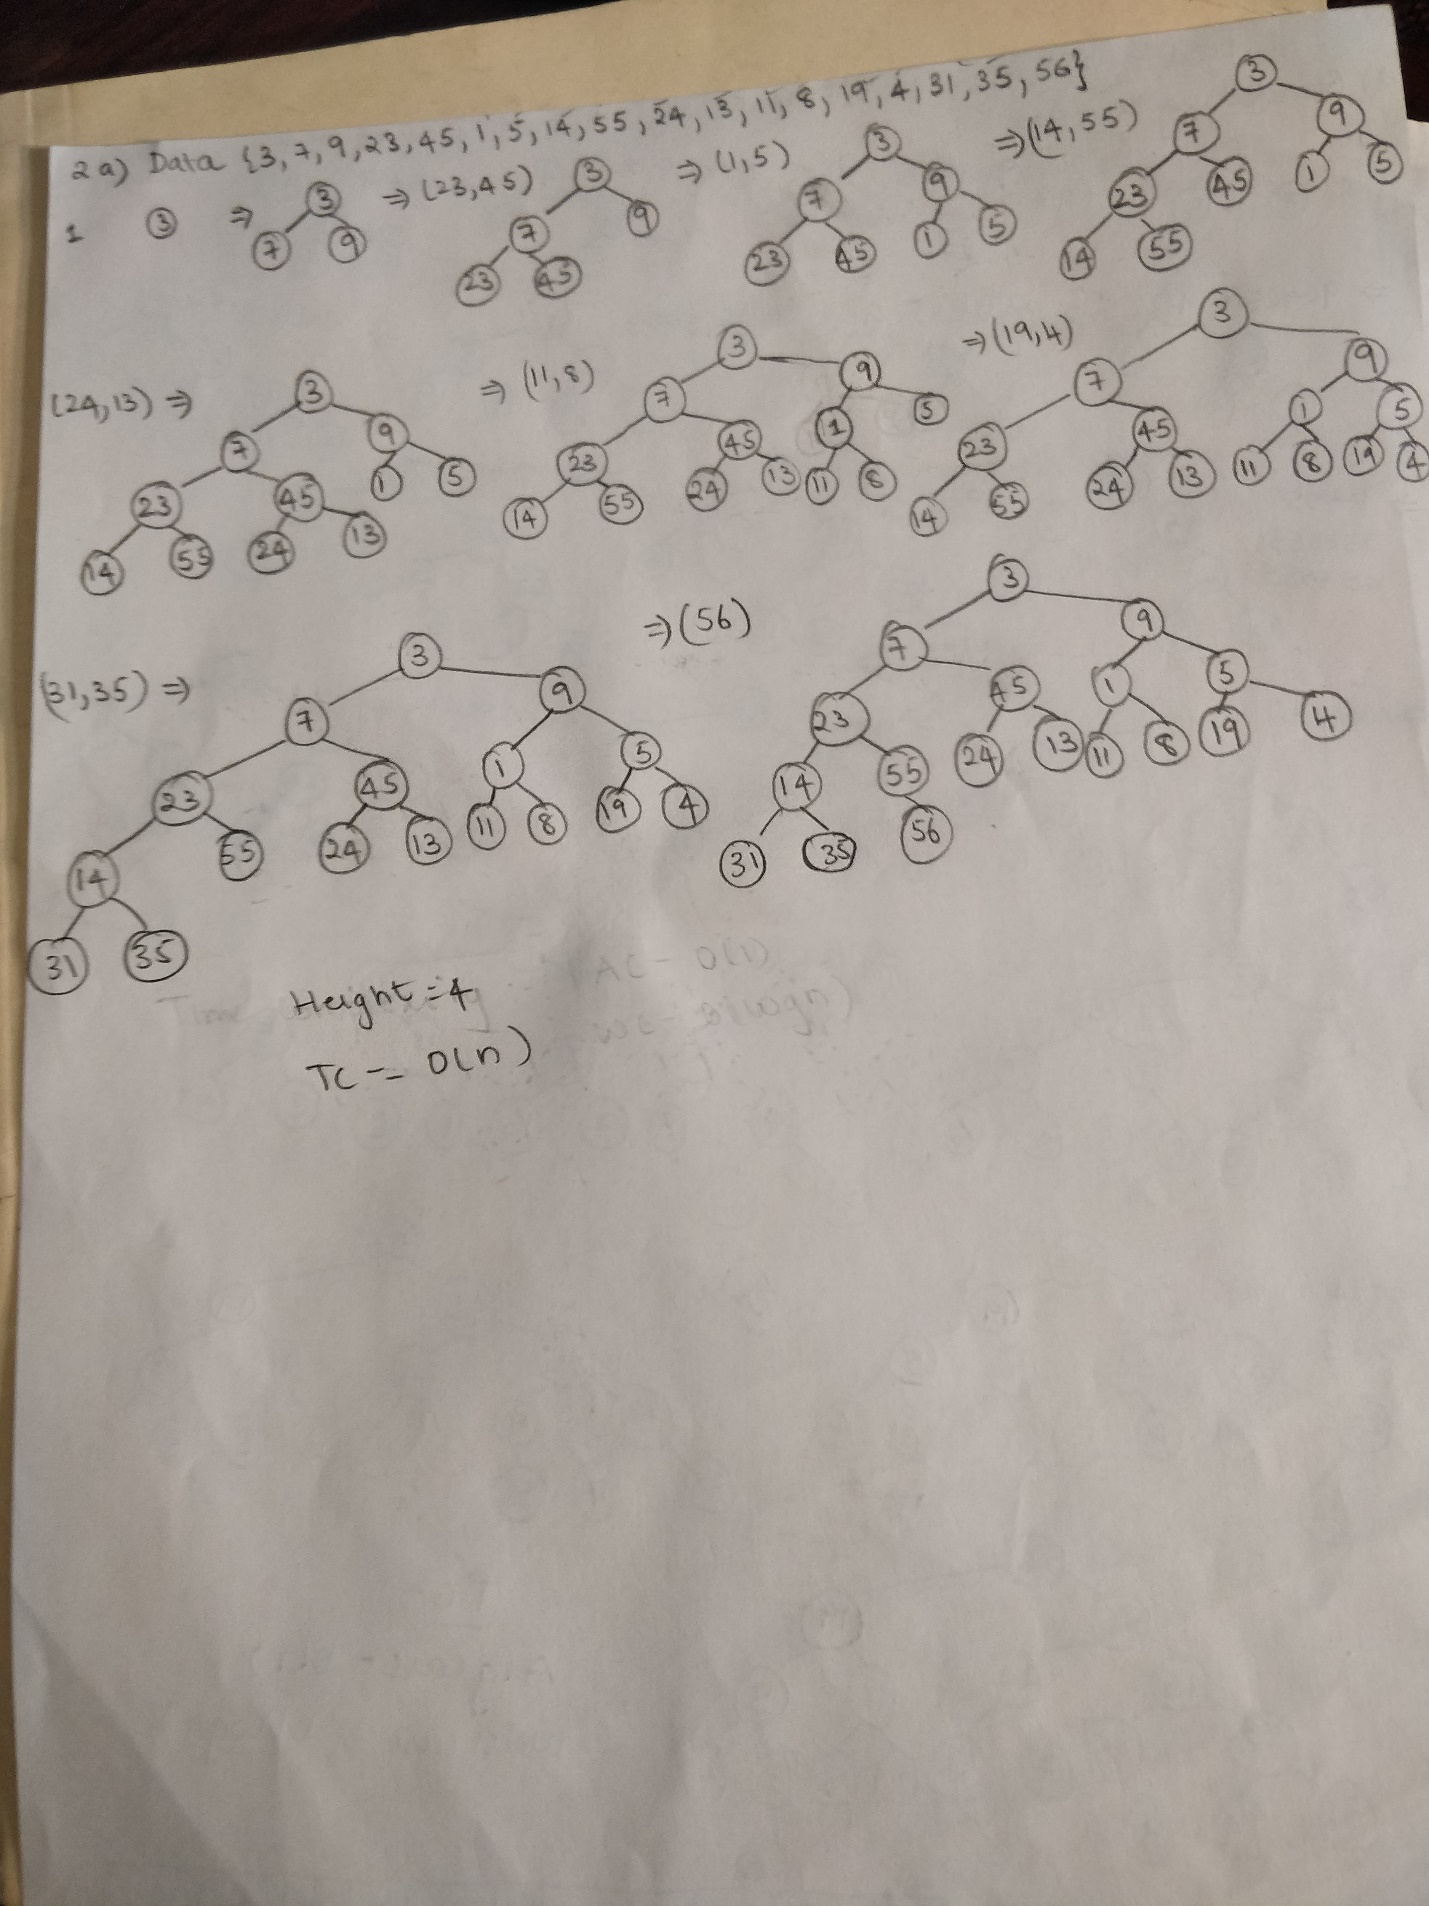 2a) Data {3,7,9,23,45,1,5,14,55,24,13,11,8,19,4,31,35,56}
1 3 ⇒ 3 7 9 ⇒ (23,45) 3 7 9 23 45 ⇒ (1,5) 3 7 9 23 45 1 5 ⇒ (14,55) 3 7 9 23 45 1 5 14 55
(24,13) ⇒ 3 7 9 23 45 1 5 14 55 24 13 ⇒ (11,8) 3 7 9 23 45 1 5 14 55 24 13 11 8 ⇒ (19,4) 3 7 9 23 45 1 5 14 55 24 13 11 8 19 4
(31,35) ⇒ 3 7 9 23 45 1 5 14 55 24 13 11 8 19 4 31 35 ⇒ (56) 3 7 9 23 45 1 5 14 55 24 13 11 8 19 4 31 35 56
Height = 4
TC -= O(n)